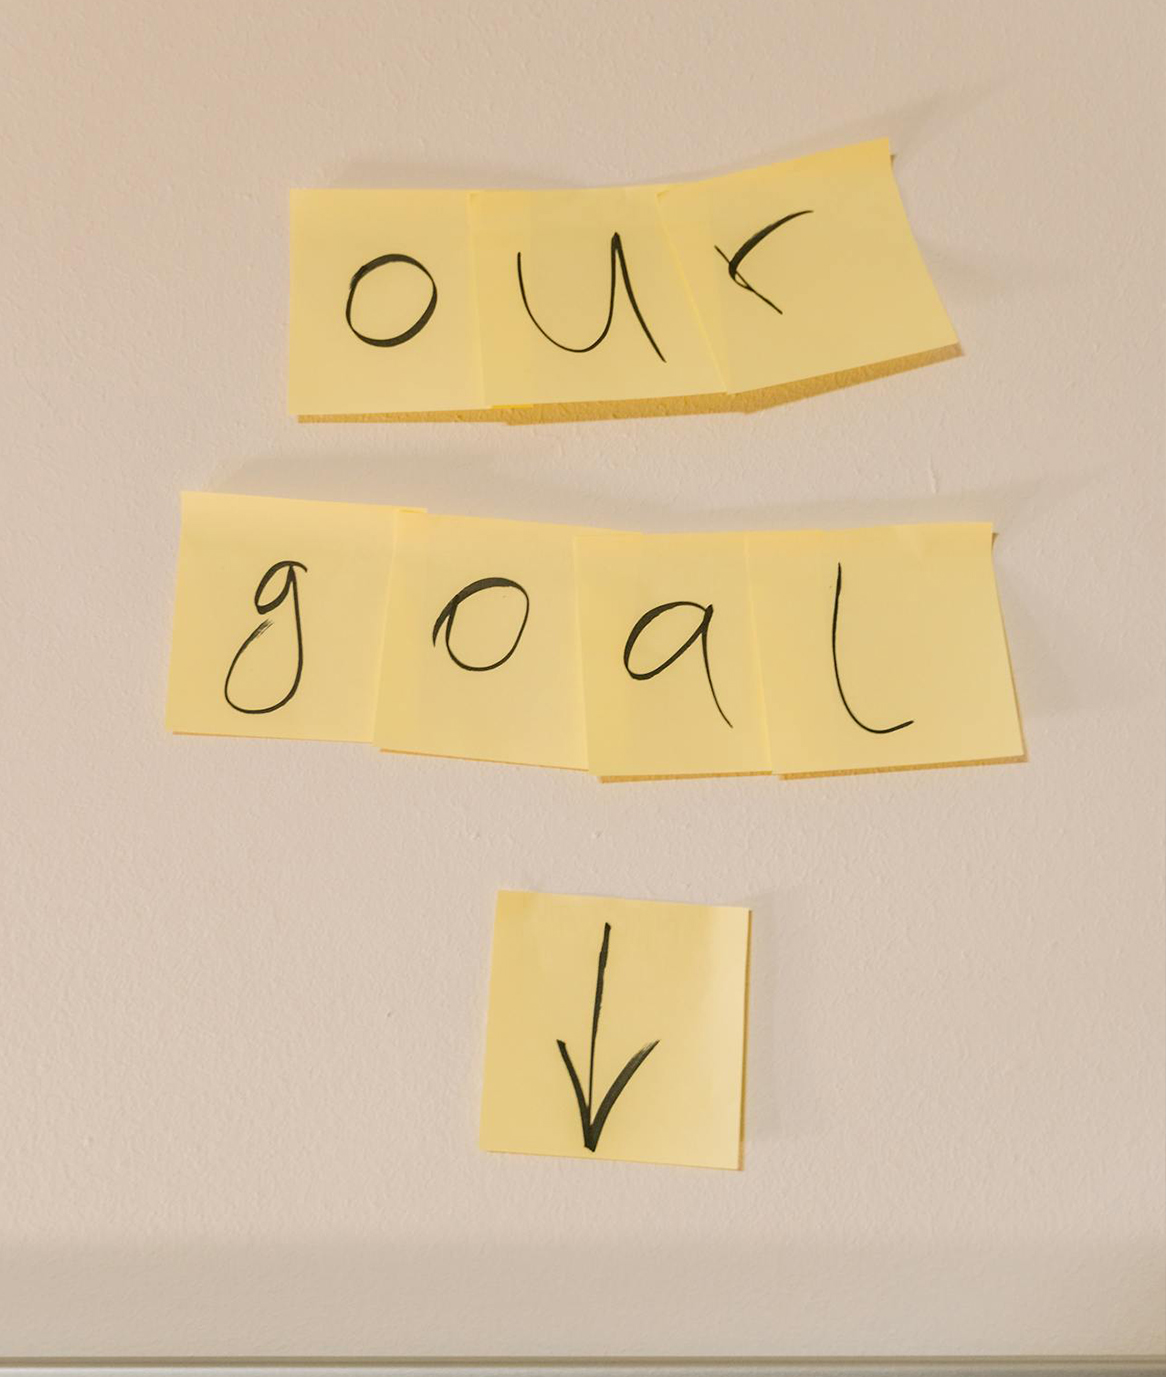 our
goal
↓